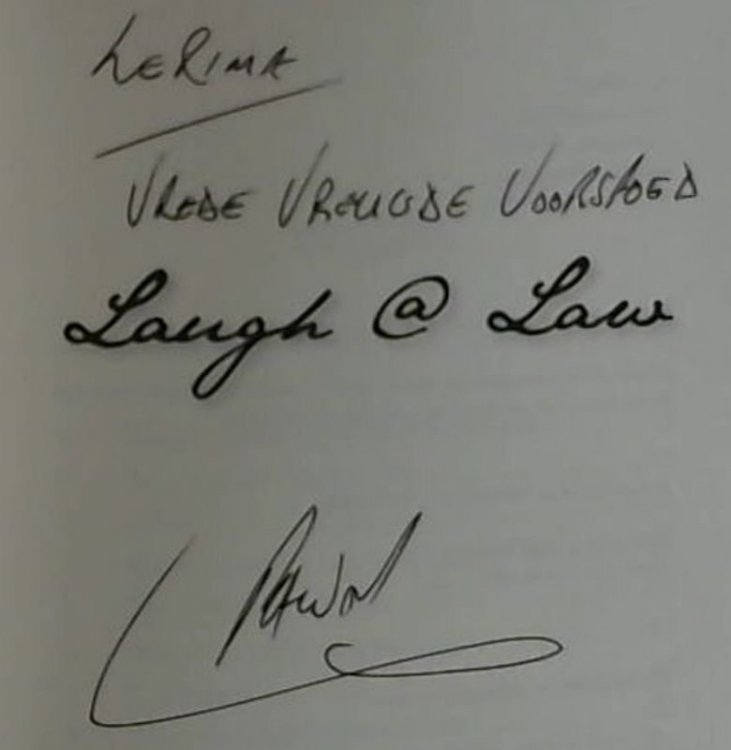 LERIMA
VREDE VREUGDE VOORSPOED
Laugh @ Law